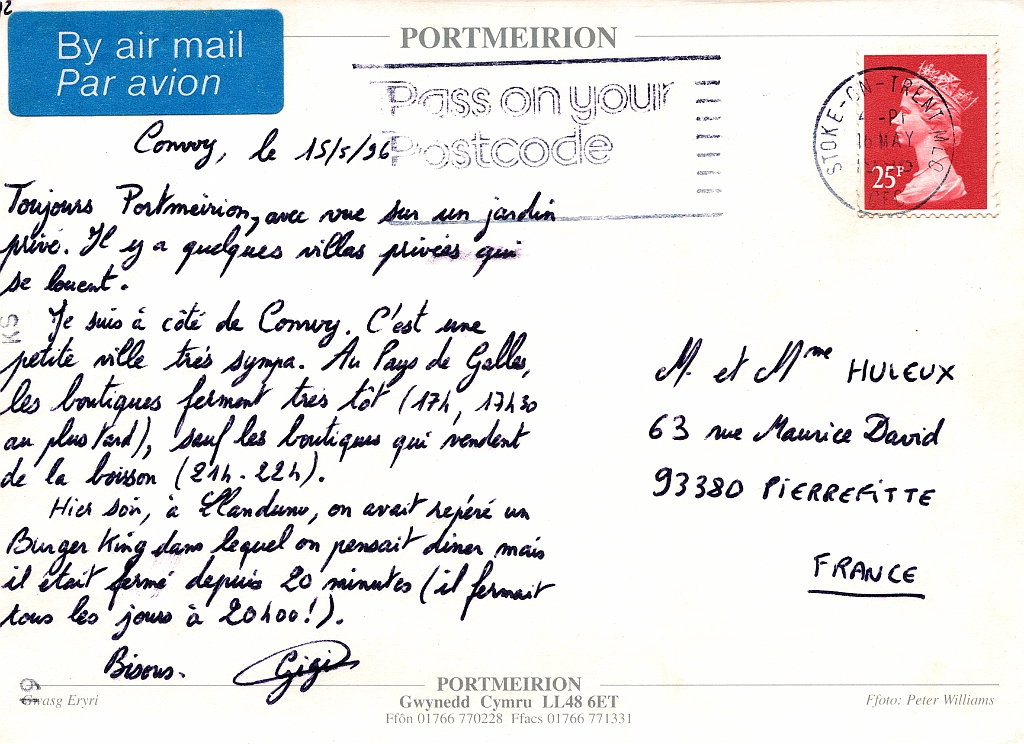 12
By air mail
Par avion
PORTMEIRION
Pass on your
Postcode
STOKE-ON-TRENT
MAY
25P
Conwy, le 15/5/96
Toujours Portmeirion, avec vue sur un jardin
privé. Il y a quelques villas privées qui
se louent.
Je suis à côté de Conwy. C'est une
petite ville très sympa. Au Pays de Galles,
les boutiques ferment très tôt (17h, 17h30
au plus tard), sauf les boutiques qui vendent
de la boisson (21h-22h).
Hier soir, à Llanduno, on avait repéré un
Burger King dans lequel on pensait dîner mais
il était fermé depuis 20 minutes (il fermait
tous les jours à 20h00!).
Bisous. Gigi
M. et Mme HULEUX
63 rue Maurice David
93380 PIERREFITTE
FRANCE
KS
19
Gwasg Eryri
PORTMEIRION
Gwynedd Cymru LL48 6ET
Ffôn 01766 770228 Ffacs 01766 771331
Ffoto: Peter Williams